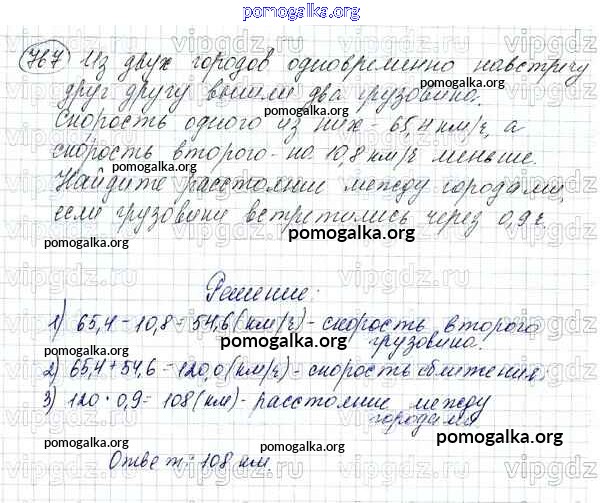 pomogalka.org
767 Из двух городов одновременно навстречу
друг другу вышли два грузовика.
pomogalka.org
Скорость одного из них - 65,4 км/ч, а
скорость второго - на 10,8 км/ч меньше.
Найдите расстояние между городами,
pomogalka.org
если грузовики встретились через 0,9 ч.
pomogalka.org
pomogalka.org
Решение:
1) 65,4 - 10,8 = 54,6 (км/ч) - скорость второго
грузовика
pomogalka.org
2) 65,4 + 54,6 = 120,0 (км/ч) - скорость сближения
3) 120 · 0,9 = 108 (км) - расстояние между
городами
pomogalka.org
pomogalka.org
pomogalka.org
Ответ: 108 км.